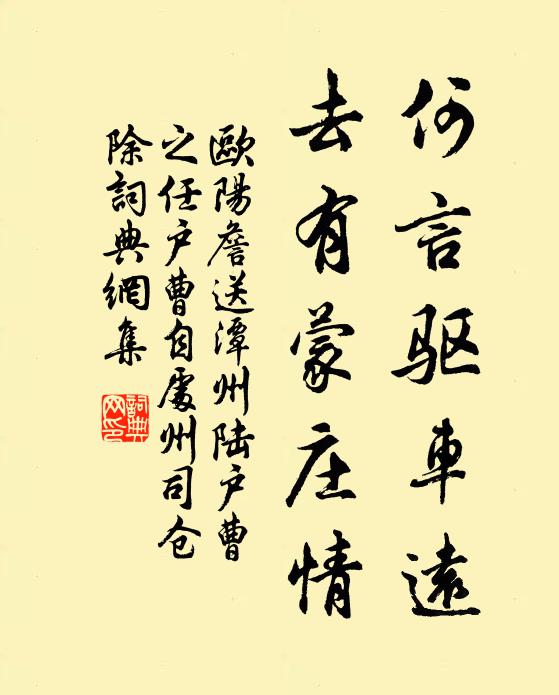 何言驱車遠
去有蒙庄情
歐陽詹送潭州陆户曹
之任户曹自處州司仓
除詞典網集
詞典
网印